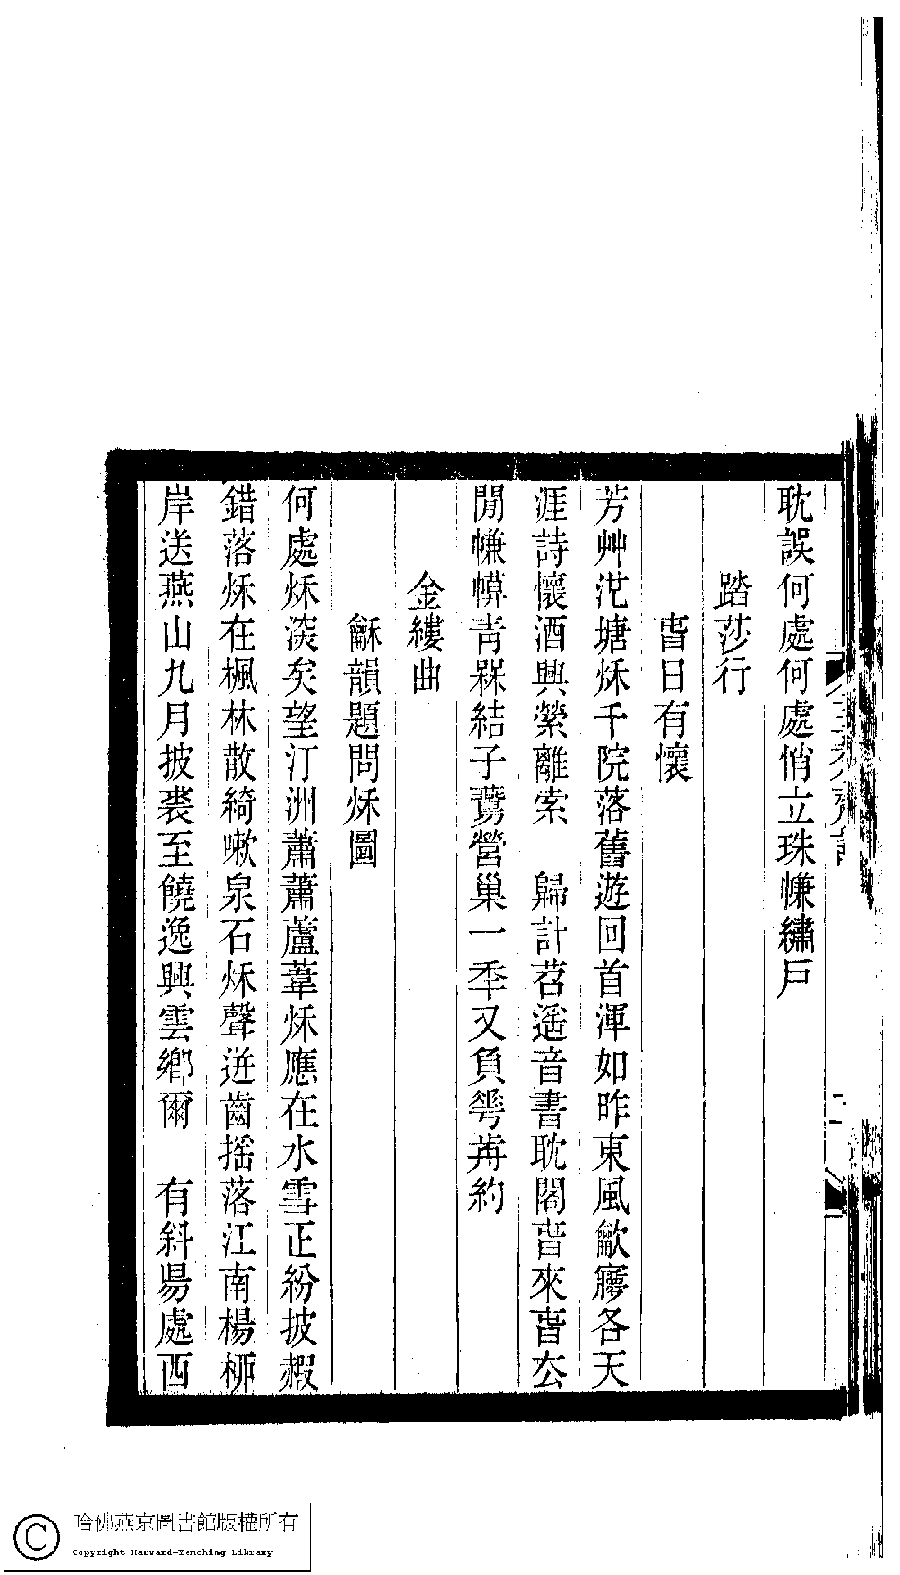 耽誤何處何處悄立珠㡘繡戶
踏莎行
旾日有懷
芳艸沱塘秌千院落舊遊回首渾如昨東風龡㝱各天
涯詩懷酒興縈離索　歸計苕遙音書耽閣旹來旾厺
閒㡘幙青槑結子鷰營巢一秊又負約
金縷曲
龢韻題問秌圖
何處秌湥矣望汀洲蕭蕭蘆葦秌應在水雪正紛披赮
錯落秌在楓林散綺嗽泉石秌聲迸齒搖落江南楊桺
岸送燕山九月披裘至饒逸興雲鄉爾　有斜昜處西
哈佛燕京圖書館版權所有
Copyright Harvard-Yenching Library